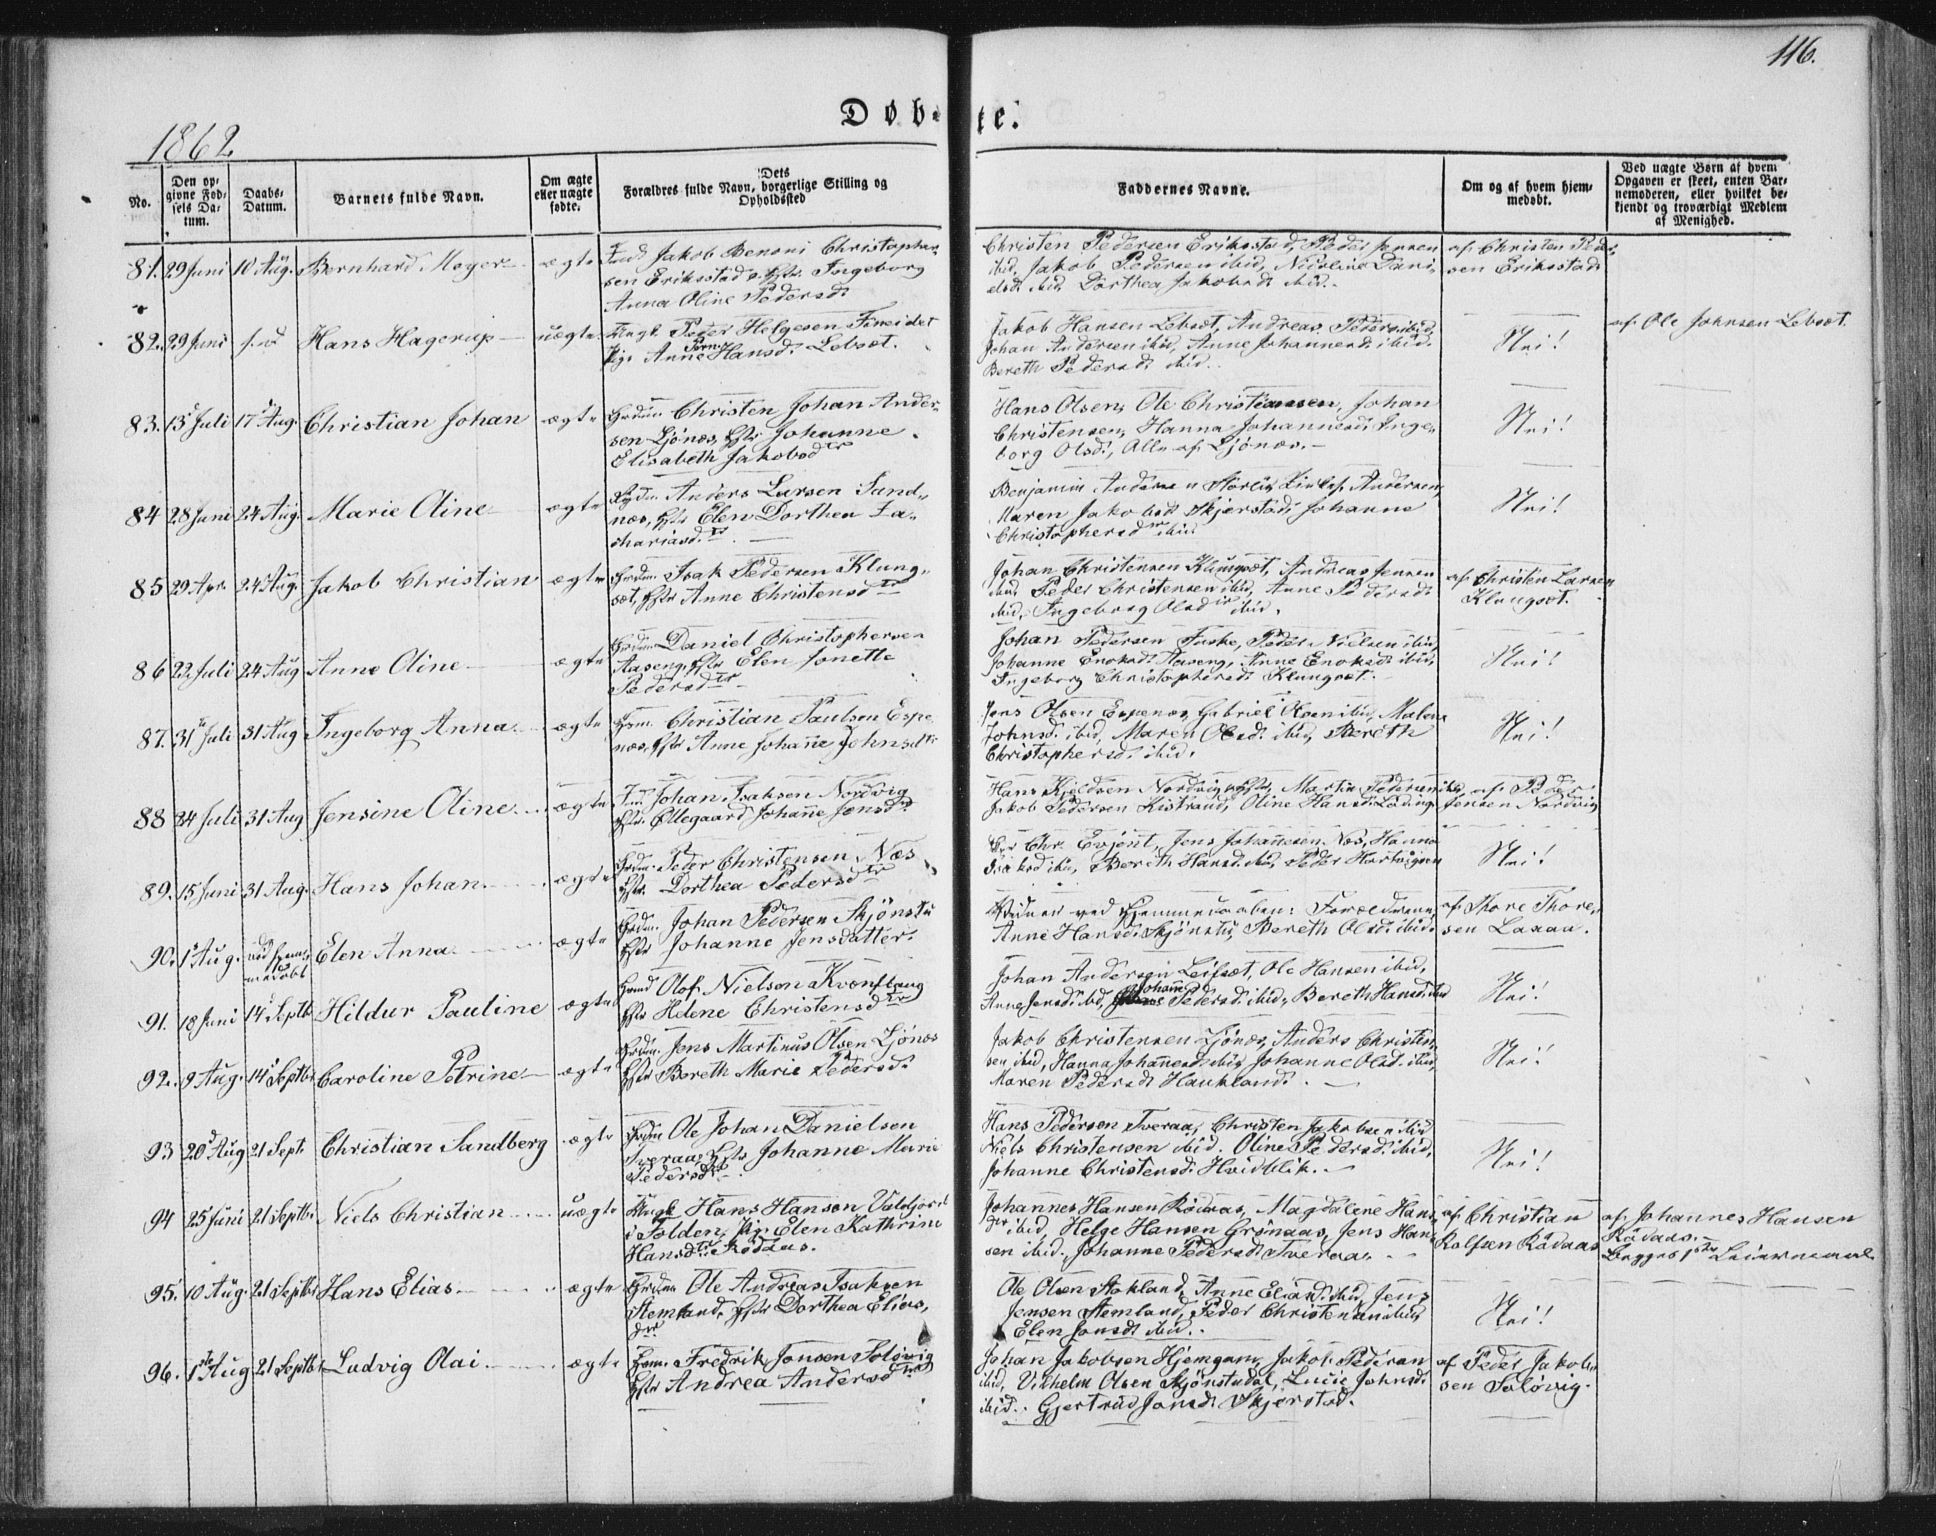 116.
Døbte.
1862
No.
Den opgivne Fødsels Datum.
Daabs-Datum.
Barnets fulde Navn.
Om ægte eller uægte fødte.
Forældres fulde Navn, Dets borgerlige Stilling og Opholdssted
Faddernes Navne.
Om og af hvem hjemmedøbt.
Ved uægte Børn af hvem Opgaven er skeet, enten Barnemoderen, eller hvilket bekjendt og troværdigt Medlem af Menighed.
81. 29 Juni 10 Aug. Bernhard Meyer ægte
Ind. Jakob Benoni Christopher-
sen Eriksstad, Hstr Ingeborg
Anna Oline Pedersd.
Christen Pedersen Eriksstad, Peder Jensen
ibid, Jakob Pedersen ibid, Nicoline Dani-
elsd. ibid, Dorthea Jakobsd. ibid.
af Christen Peder-
sen Eriksstad.
82. 29 Juni s.d. Hans Hagerup uægte
Ungk. Peder Helgesen Fineidet
Pige Anne Pern. Hansd. Lebsæt.
Jakob Hansen Lebsæt, Andreas Peders. ibid,
Johan Andersen ibid, Anne Johannesd. ibid.
Bereth Pedersd. ibid.
Nei!
af Ole Johnsen Lebsæt.
83. 13 Juli 17 Aug. Christian Johan ægte
Grdm. Christen Johan Ander-
sen Ljönæs, Hstr Johanne
Elisabeth Jakobsdtr
Hans Olsen, Ole Christiansen, Johan
Christensen, Hanna Johannesd. Inge-
borg Olsd., Alle af Ljönæs.
Nei!
84 28 Juni 24 Aug. Marie Oline ægte
Anders Larsen Sand-
næs, Hstr Elen Dorthea Za-
chariasd.tr
Benjamin Andersen Storli, Andersen,
Maren Jakobsd. Skjerstad, Johanne
Christophersdtr ibid
Nei!
85 29 Apr. 24 Aug. Jakob Christian ægte
Grdm. Isak Pedersen Klung-
sæt, Hstr Anne Christensdtr
Johan Christensen Klungsæt, Andreas Jensen
ibid, Peder Christensen ibid, Anne Pedersd.
ibid, Ingeborg Olsdtr ibid.
af Christen Larsen
Klungset.
86 22 Juli 24 Aug Anne Oline ægte
Grdm. Daniel Christophersen
Aaseng, Hstr Elen Jonette
Pedersdtr
Johan Pedersen Fuske, Peder Nielsen ibid,
Johanne Enoksd. Aaseng, Anne Enoksd. ibid,
Ingeborg Christophersd. Klungset.
Nei!
87. 31 Juli 31 Aug Ingeborg Anna ægte
Christian Paulsen Espe-
næs, Hstr Anne Johanne Johnsdtr
Jens Olsen Espenæs, Gabriel Olsen ibid, Malena
Johnsd. ibid, Maren Olsd. ibid, Bereth
Christophersd. ibid.
Nei!
88 24 Juli 31 Aug Jensine Oline ægte
Johan Isaksen Nordvig
Hstr Ellegaard Johanne Jensdtr
Hans Kjeldsen Nordvig, Martin Pedersen ibid,
Jakob Pedersen Kistrand, Oline Hansd. Løding.
af Peder
Jensen Nordvig
89. 15 Juni 31 Aug. Hans Johan ægte
Grdm. Peder Christensen Næs
Hstr Dorthea Pedersdtr
Per Chr. Evjent, Jens Johannesen Næs, Hanna
Isaksd ibid, Bereth Hansd. ibid, Peder Hartvigsen
Nei!
90. 1 Aug. ved hjem-
medøbt Elen Anna ægte
Grdm. Johan Pedersen Skjönstu
Hstr Johanne Jensdatter.
Vidner ved Hjemmedaaben: Forældrene,
Anne Hansd. Skjönstu, Bereth Olsd. ibid.
af Thore Thore-
sen Laxaa.
91. 18 Juni 14 Septbr Hildur Pauline ægte
Grmd Olof Nielsen Kvænflaug
Hstr Helene Christensdtr
Johan Andersen Leifset, Ole Hansen ibid,
Anne Jensd. ibid, Johanne Pedersd. ibid, Bereth Hansd. ibid
Nei!
92. 9 Aug. 14 Septbr Caroline Petrine ægte
Grdm. Jens Martinus Olsen Ljönæs
Hstr Bereth Marie Pedersd.
Jakob Christensen Ljönæs, Anders Christen-
sen ibid, Hanna Johannesd. ibid, Johanne Olsd. ibid,
Maren Pedersd. Haukland.
Nei!
93 20 Aug 21 Sept. Christian Sandberg ægte
Grdm Ole Johan Danielsen
Tveraa, Hstr Johanne Marie
Pedersdtr
Hans Pedersen Tveraa, Christen Jakobsen ibid
Niels Christensen ibid. Oline Pedersd. ibid,
Johanne Christensd. Hvidblik.
Nei!
94 25 Juni 21 Septbr Niels Christian uægte
Ungk. Hans Hansen
i Folden, Pig. Elen Kathrine
Hansdtr Rödaas.
Johannes Hansen Rödaas, Magdalene Hans-
dtr ibid, Helge Hansen Grönaas, Jens Han-
sen ibid. Johanne Pedersd. Tveraa.
af Christian
Rolfsen Rödaas
af Johannes Hansen
Rødaas.
begges 1ste Leiermaal
95. 10 Aug. 21 Septbr Hans Elias ægte
Grdm Ole Andreas Isaksen
Stemland, Hstr Dorthea Elias-
dtr
Ole Olsen Stokland, Anne Eliasd. ibid, Jens
Jensen Stemland, Peder Christensen ibid,
Elen Jonsd. ibid.
Nei!
96. 1ste Aug 21 Septbr Ludvig Olai ægte
Fredrik Jonsen Solövig
Hstr Andrea Andersdtr
Johan Jakobsen Hjemgam, Jakob Pedersen
ibid, Vilhelm Olsen Skjönstudal, Lucie Johnsd.
ibid. Gjertrud Jonsd. Skjerstad.
af Peder Jakob-
sen Solövig.